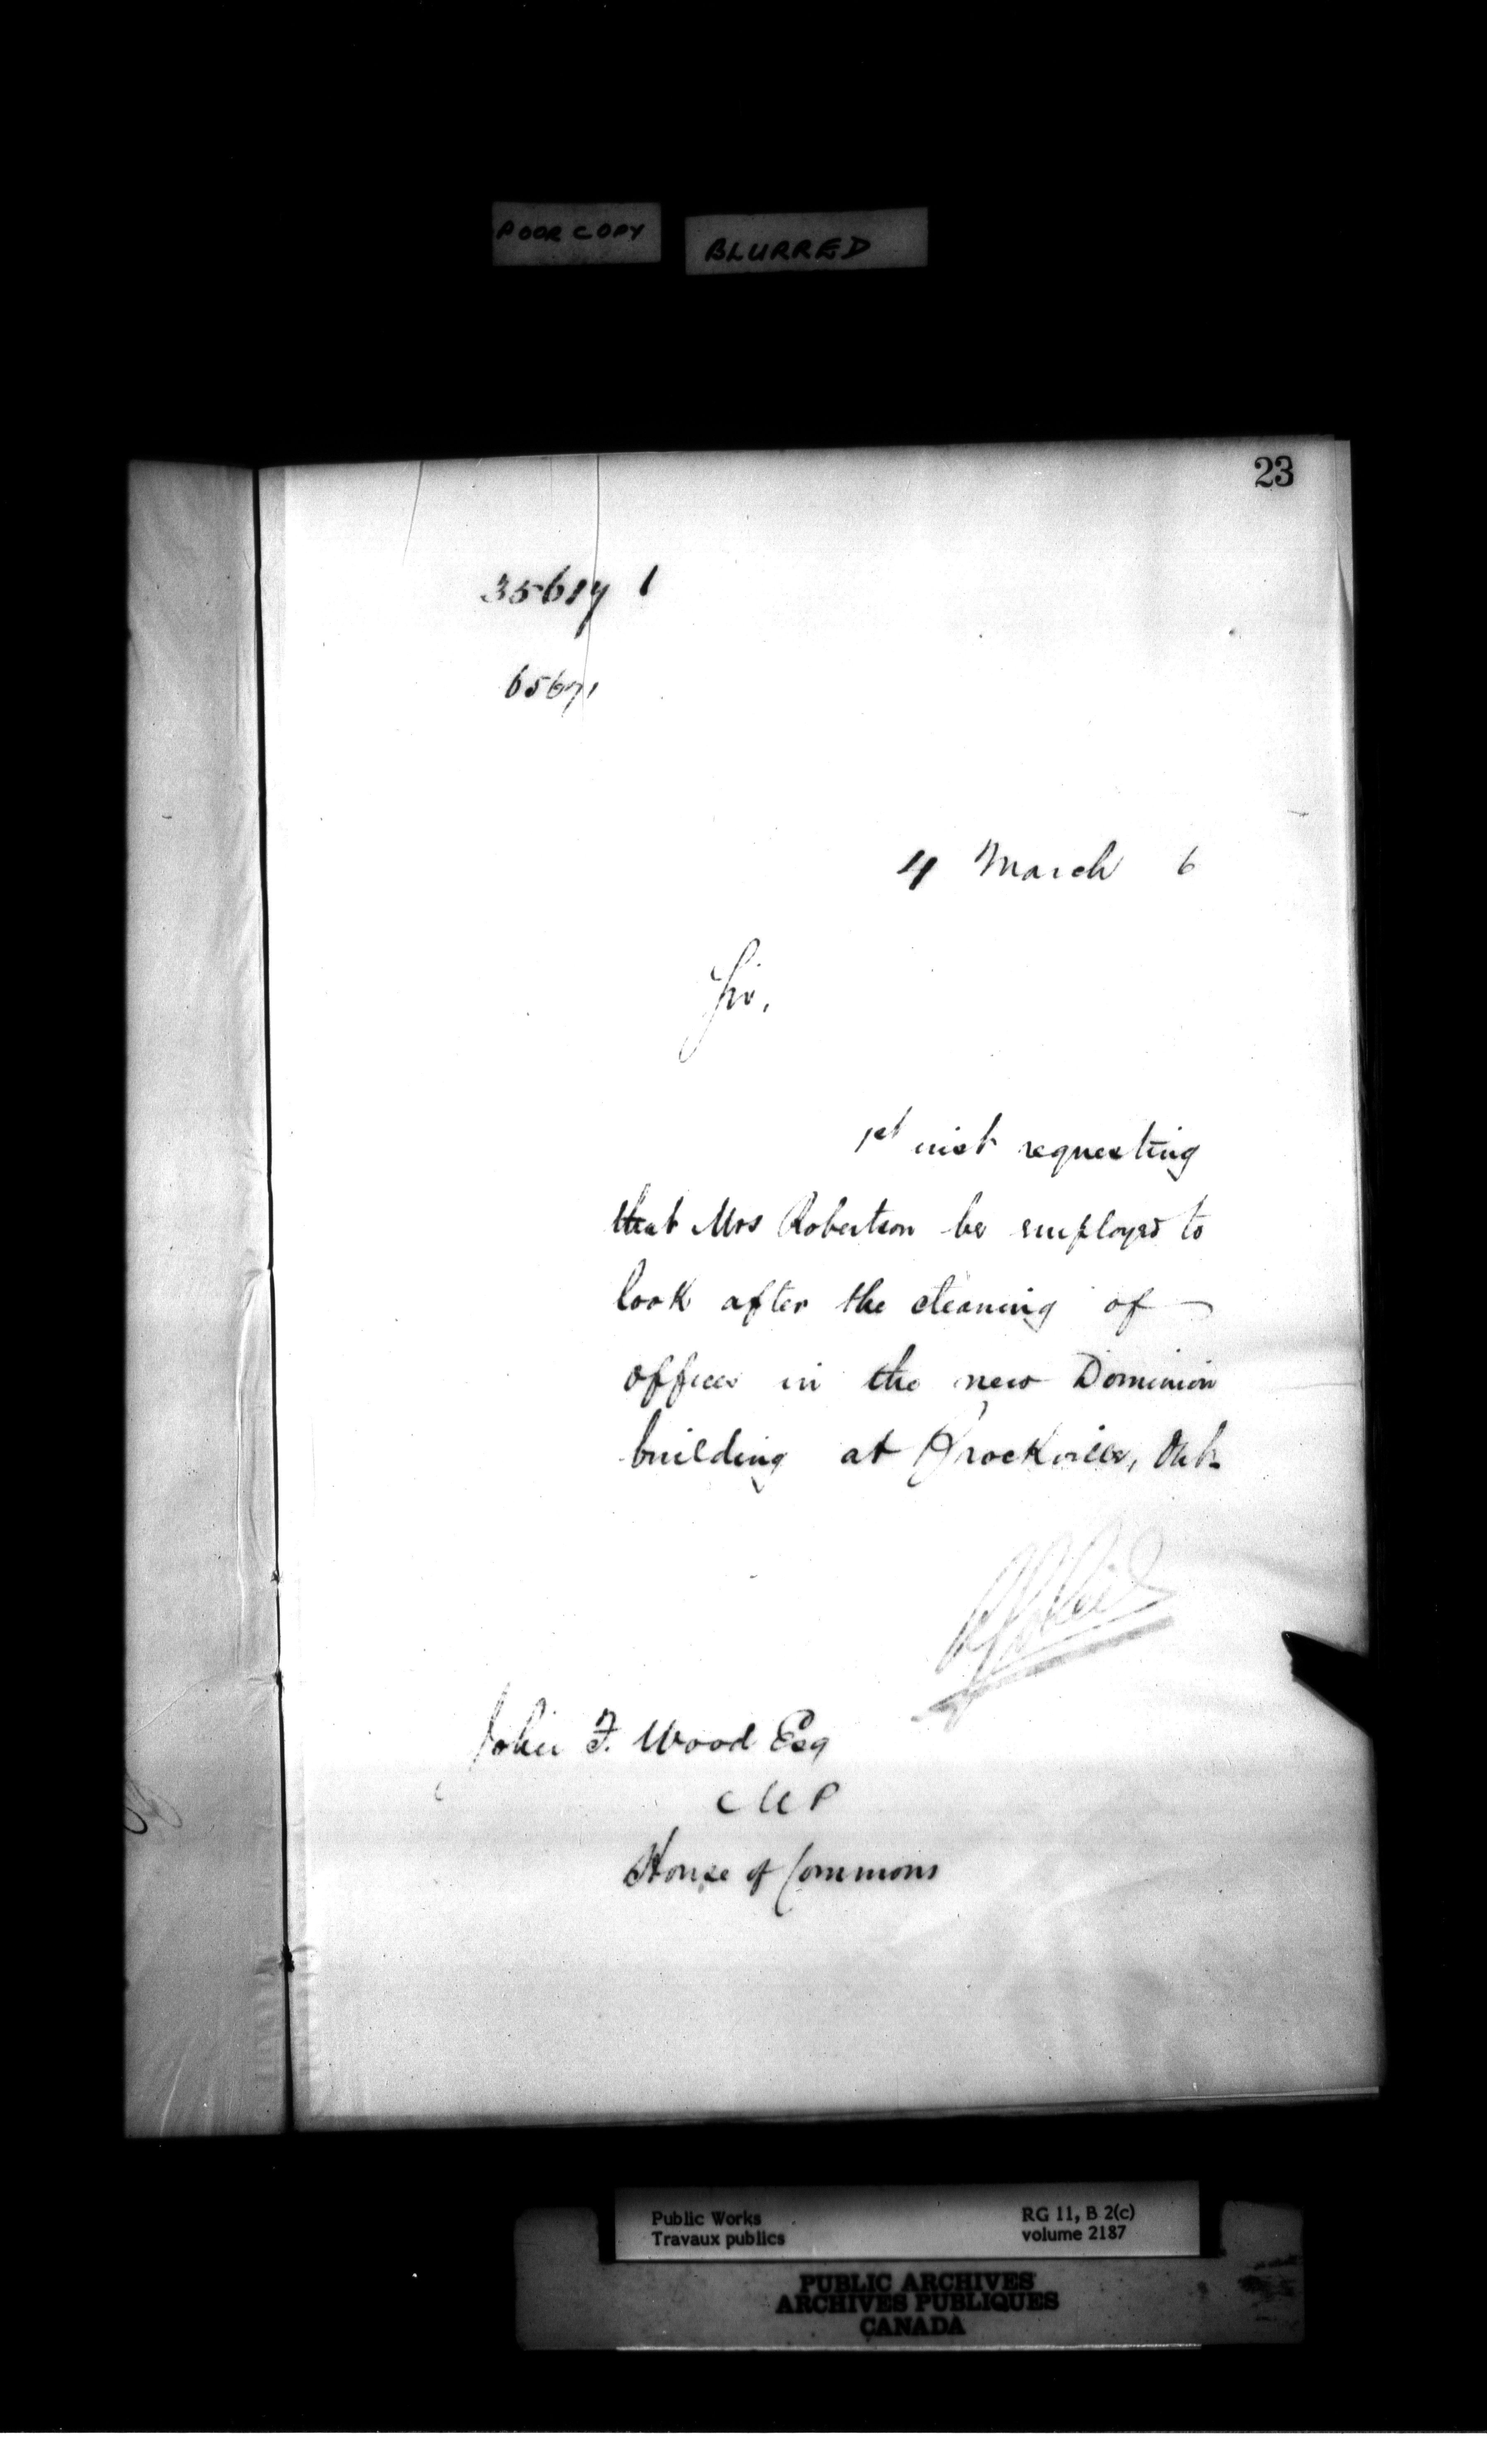 POOR COPY BLURRED
23
35617 1
65671
4 March 6
Sir,
1st inst requesting
that Mrs Robertson be employed to
look after the cleaning of
offices in the new Dominion
building at Brockville, Ont.
John F. Wood Esq
MP
House of Commons
Public Works RG 11, B 2(c)
Travaux publics volume 2187
PUBLIC ARCHIVES
ARCHIVES PUBLIQUES
CANADA